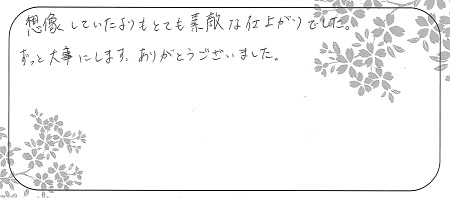 想像していたよりもとても素敵な仕上がりでした。
ずっと大事にします。ありがとうございました。